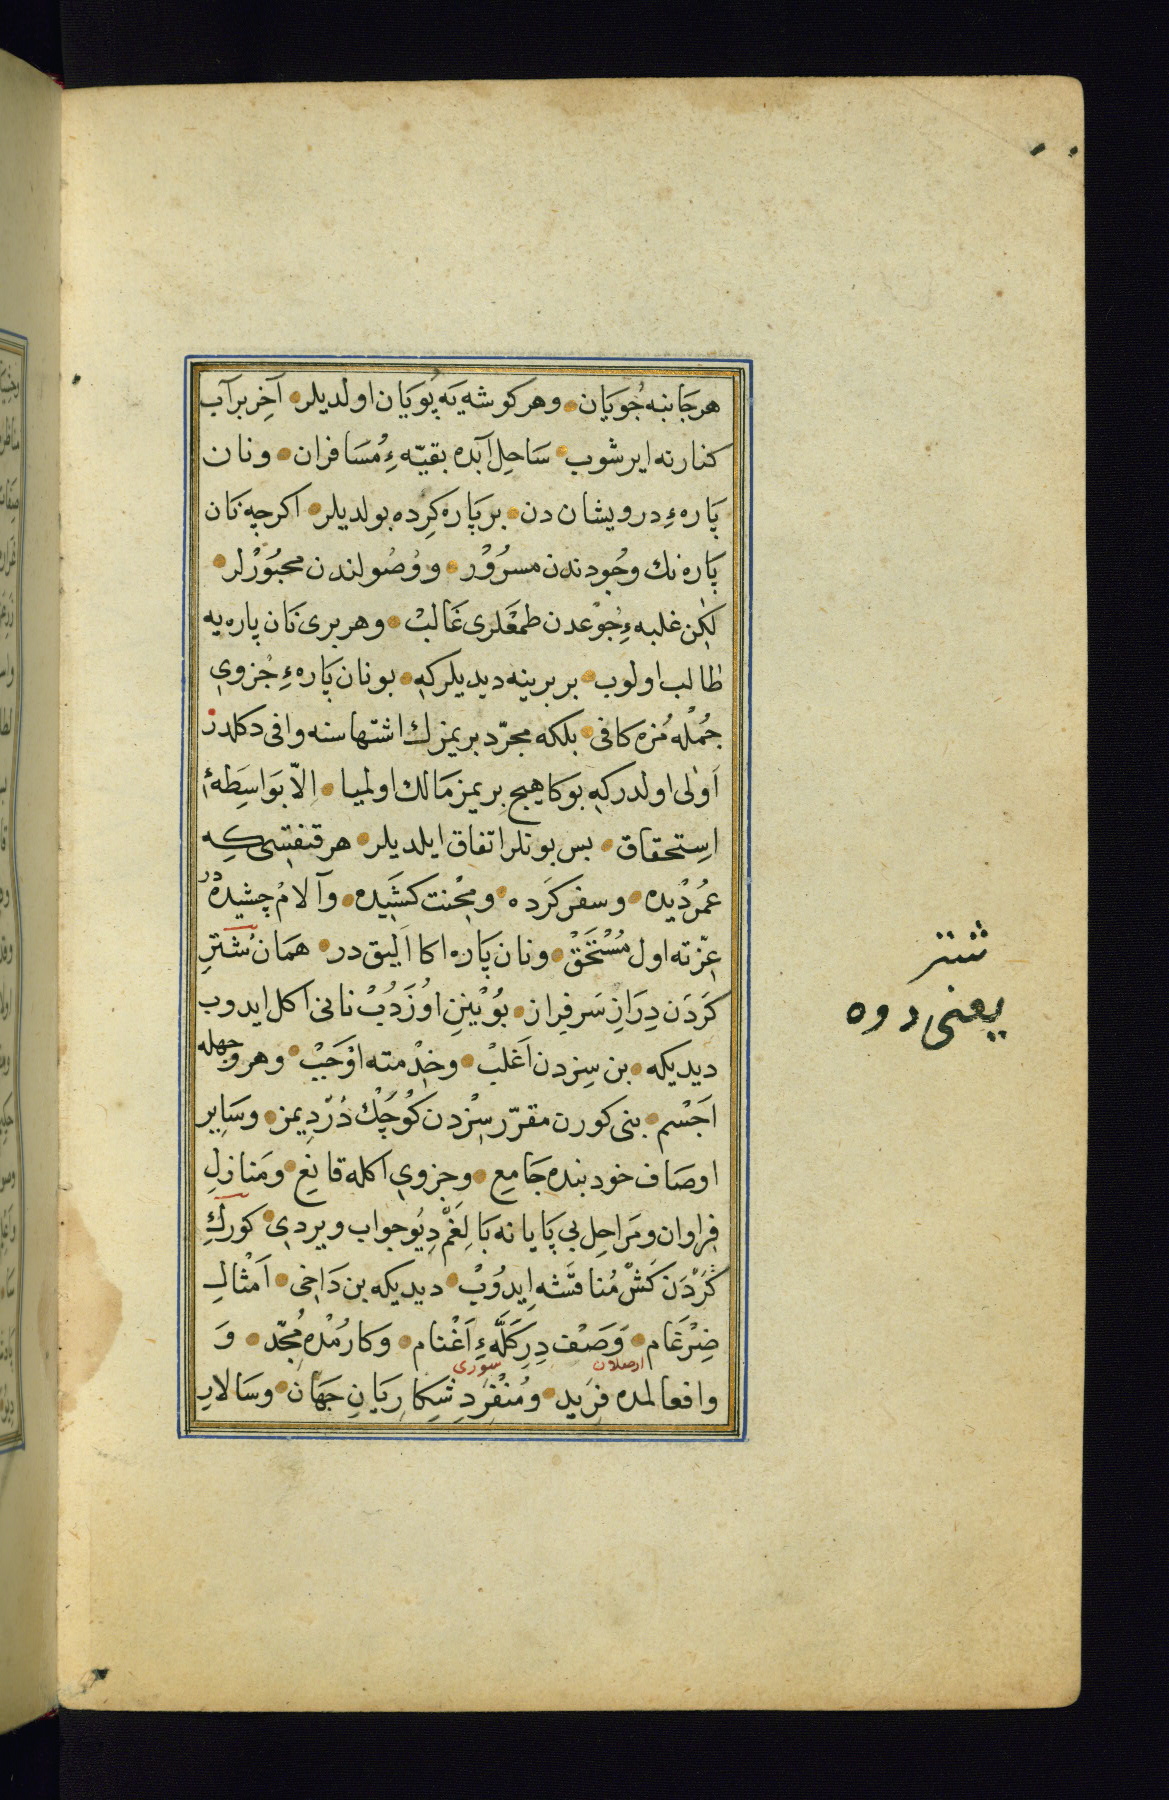 هر جَانبه جُويَان وهر كوشه يَه پُويَان اولديلر آخِر بر آب
كنارنه ايرشوب سَاحلِ آبده بقيّه ءِ مُسَافران ونان
پَاره ءِ درويشان دن بر پَاره كِرده بولديلر اكرچه نَان
پَاره نك وجُودندن مسرُوْر ووُصُولندن محبُوْرلر
لكِن غلبه ءِ جُوْعدن طمعْلرى غَالبْ وهر برى نَان پاره يه
طالب اولوب بر برينه ديديلر كه بو نان پَاره ءِ جُزوي
جُمْله مُزه كافى بلكه مجرّد بريمزك اشتهاسنه وافى دكلدر
اَولى اولدر كه بوكا هيچ بريمز مَالك اولميا اِلاّ بوَاسِطهءٔ
اِستحقاق بس بونلر اتفاق ايلديلر هر قنغمِسى كه
عُمُرْديده وسفر كَرده ومِحْنت كشيده وآلامْ چشيده در
عِزّته اول مُسْتَحَقْ ونان پَاره اكا اَليق در همَان شُتُرِ
كَردَن دِرَازِ سَرفِراز بُوْيْنِن اوُزَدُبْ نانى اكل ايدوب
ديديكه بن سِزدن اَغلبْ وخِدْمته اوْجَبْ وهر وجهله
اَجْسم بنى كورن مقرّر سِزْدن كوْچَكْ دُرْ دِيمز وسَاير
اوصَاف خود بنده جَامِع وجزوي اكله قَانِع ومَنازلِ
فِراوان ومَراحلِ بى پَايانه بَالِغَمْ دِيُو جواب ويردى كورك
كَردَن كَشْ مُناقَشه اِيدُوبْ ديديكه بن دَاخى اَمْثالِ
ضِرْغَام وَصَفْ دِر كَلّه ءِ اَغْنام وكارُمْده مُجِدّ وَ
ارصلان سورى
وافعالمده فريد ومُنْفَردِ شِكارِيَانِ جهَان وسَالارِ
شتر
يعنى دوه